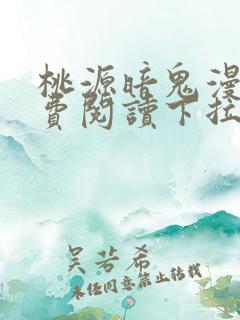 桃源暗鬼漫
費閱讀下拉
吴若希
未经同意禁止转载